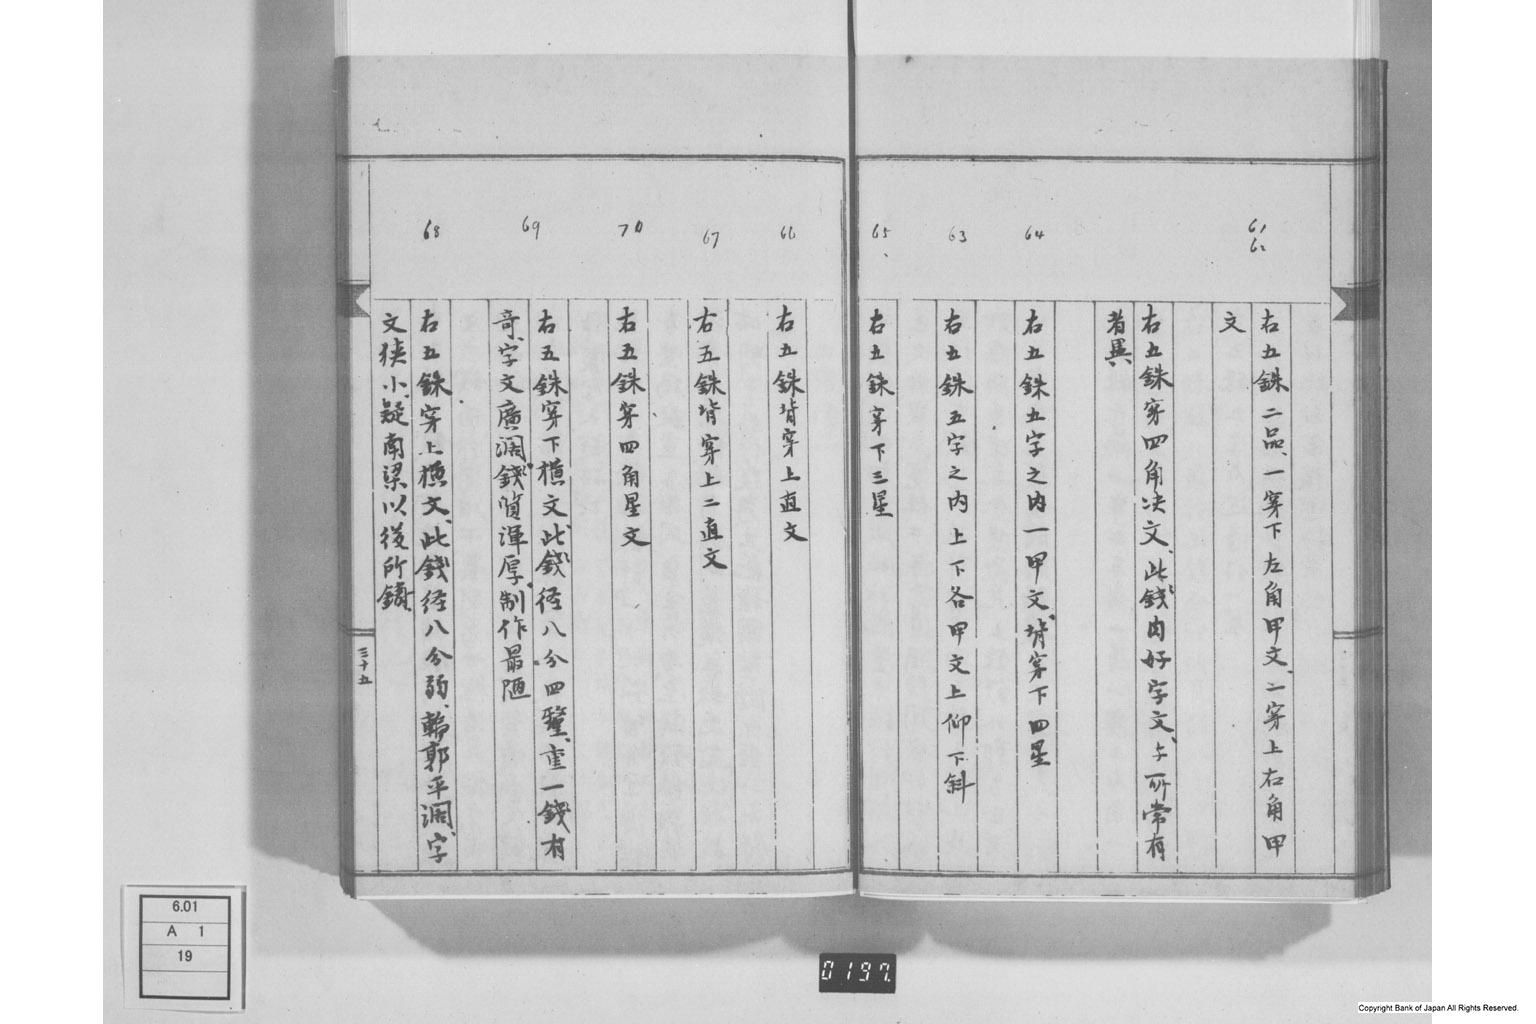 61
62
右五銖二品、一穿下左角甲文、二穿上右角甲
文
右五銖穿四角决文、此錢肉好字文、与所常有
者異
64
右五銖五字之内一甲文、背穿下四星
63
右五銖五字之内上下各甲文上仰下斜
65
右五銖穿下三星
66
右五銖背穿上直文
67
右五銖背穿上二直文
70
右五銖穿四角星文
69
右五銖穿下横文、此錢径八分四釐、重一錢有
奇、字文廣濶、錢質渾厚、制作最陋
68
右五銖穿上横文、此錢径八分弱、輪郭平濶、字
文狭小、疑南梁以後所鑄
三十五
6.01
A 1
19
0197.
Copyright Bank of Japan All Rights Reserved.